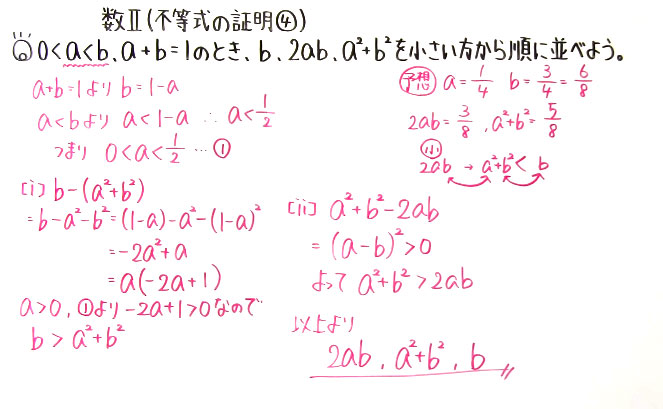 数Ⅱ(不等式の証明④)
0<a<b、a+b=1のとき、b、2ab、a²+b²を小さい方から順に並べよう。
a+b=1より b=1-a
a<bより a<1-a ∴ a<1/2
つまり 0<a<1/2 … ①
予想 a=1/4 b=3/4=6/8
2ab=3/8 , a²+b²=5/8
小
2ab → a²+b² < b
[i] b-(a²+b²)
=b-a²-b²=(1-a)-a²-(1-a)²
=-2a²+a
=a(-2a+1)
a>0, ①より -2a+1>0なので
b > a²+b²
[ii] a²+b²-2ab
=(a-b)²>0
よって a²+b²>2ab
以上より
2ab , a²+b² , b